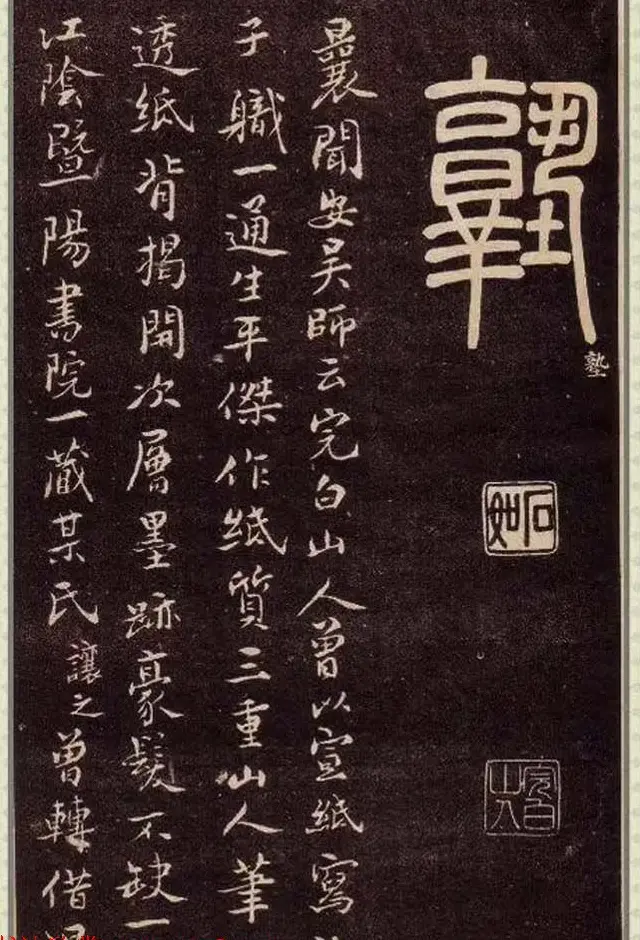 塾
塾
石如
完白山人
曩聞安吴師云完白山人曾以宣紙寫
子職一通生平傑作紙質三重山人筆
透紙背揭開次層墨跡豪髮不缺一
江陰暨陽書院一藏某氏讓之曾轉借